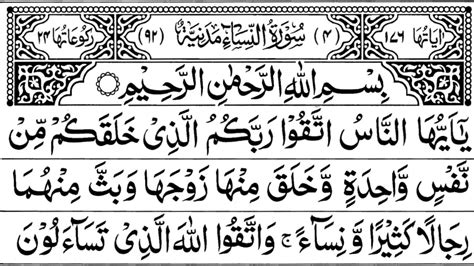 اٰیَاتُهَا ۱۷۶ (۴) سُوْرَةُ النِّسَآءِ مَدَنِیَّةٌ (۹۲) رُكُوْعَاتُهَا ۲۴
بِسْمِ اللّٰهِ الرَّحْمٰنِ الرَّحِیْمِ
یٰۤاَیُّهَا النَّاسُ اتَّقُوْا رَبَّكُمُ الَّذِیْ خَلَقَكُمْ مِّنْ
نَّفْسٍ وَّاحِدَةٍ وَّخَلَقَ مِنْهَا زَوْجَهَا وَبَثَّ مِنْهُمَا
رِجَالًا كَثِیْرًا وَّنِسَآءً ۚ وَاتَّقُوا اللّٰهَ الَّذِیْ تَسَآءَلُوْنَ